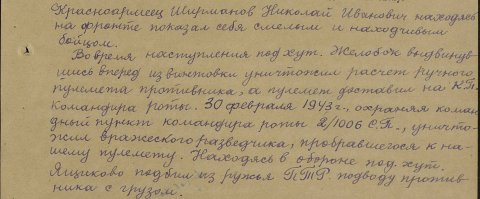 Красноармеец Ширманов Николай Иванович находясь
на фронте показал себя смелым и находчивым
бойцом.
Во время наступления под хут. Желобок выдвинув
шись вперед из винтовки уничтожил расчет ручного
пулемета противника, а пулемет доставил на К.П.
командира роты. 30 февраля 1943г., охраняя коман
дный пункт командира роты 2/1006 С.П., уничто-
жил вражеского разведчика, пробравшегося к на-
шему пулемету. Находясь в обороне под хут.
Ящиково подбил из ружья ПТР. подводу против-
ника с грузом.